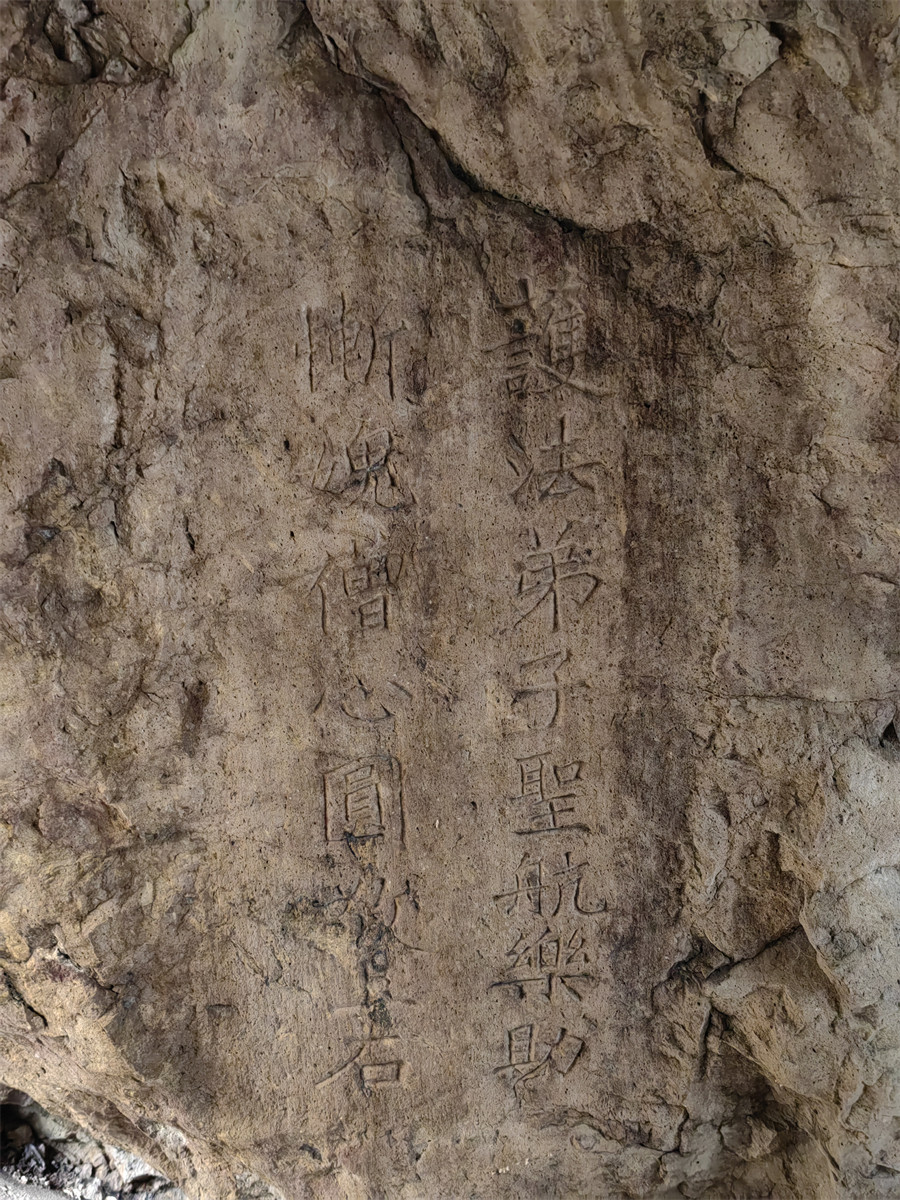 護法弟子聖航樂助
慚愧僧心圓鑿石